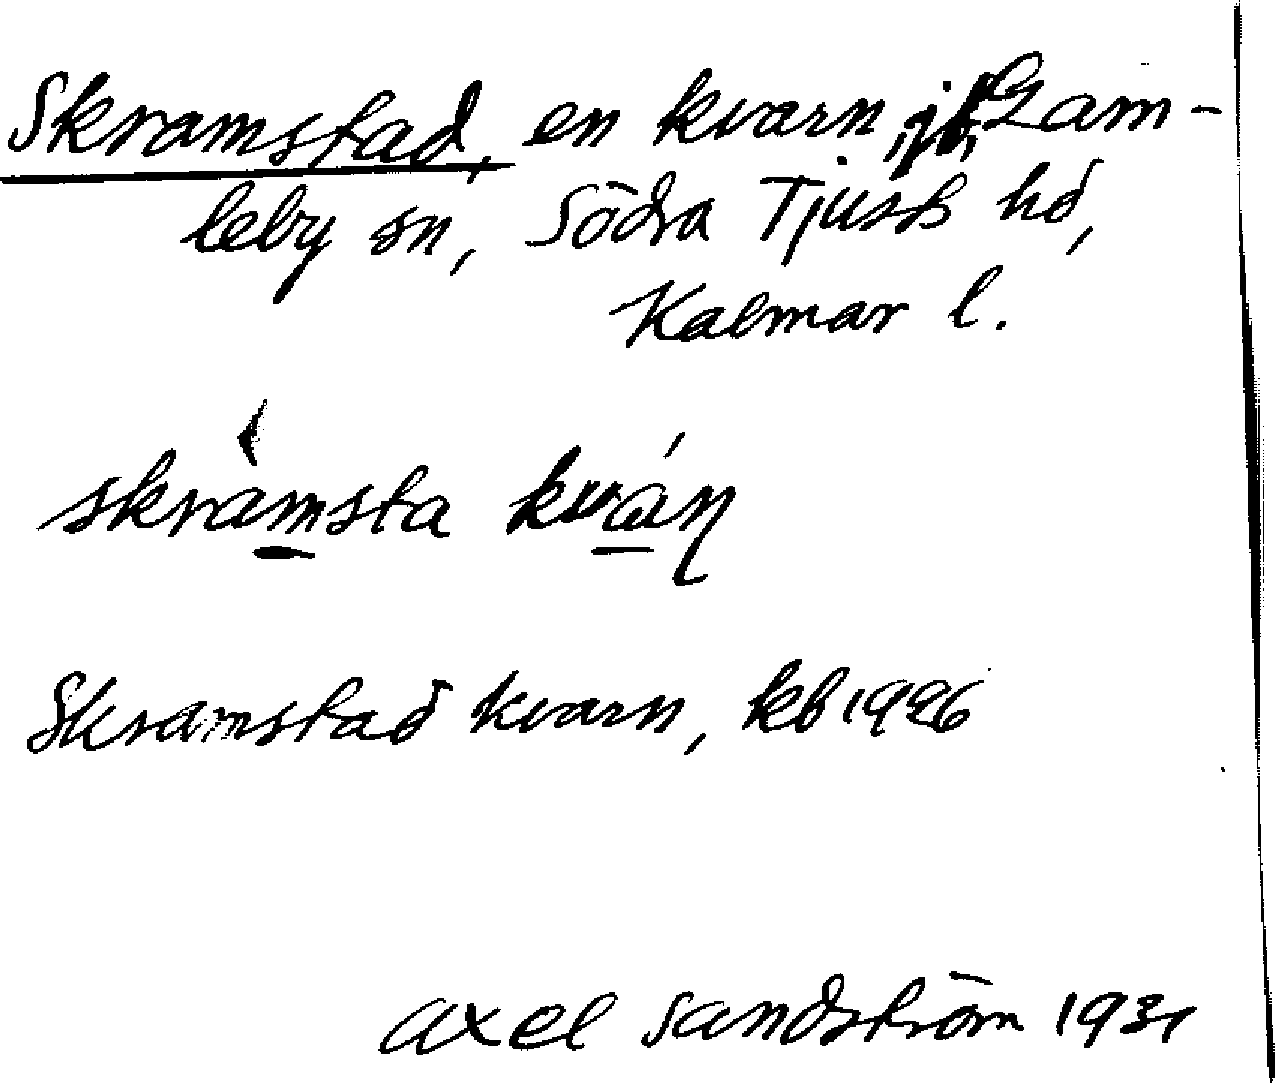 Skramstad, en kvarn, Gam-
leby sn, Södra Tjusts hd,
Kalmar l.
skràmsta kván
Skramstad kvarn, kb 1926
Axel Sandström 1931